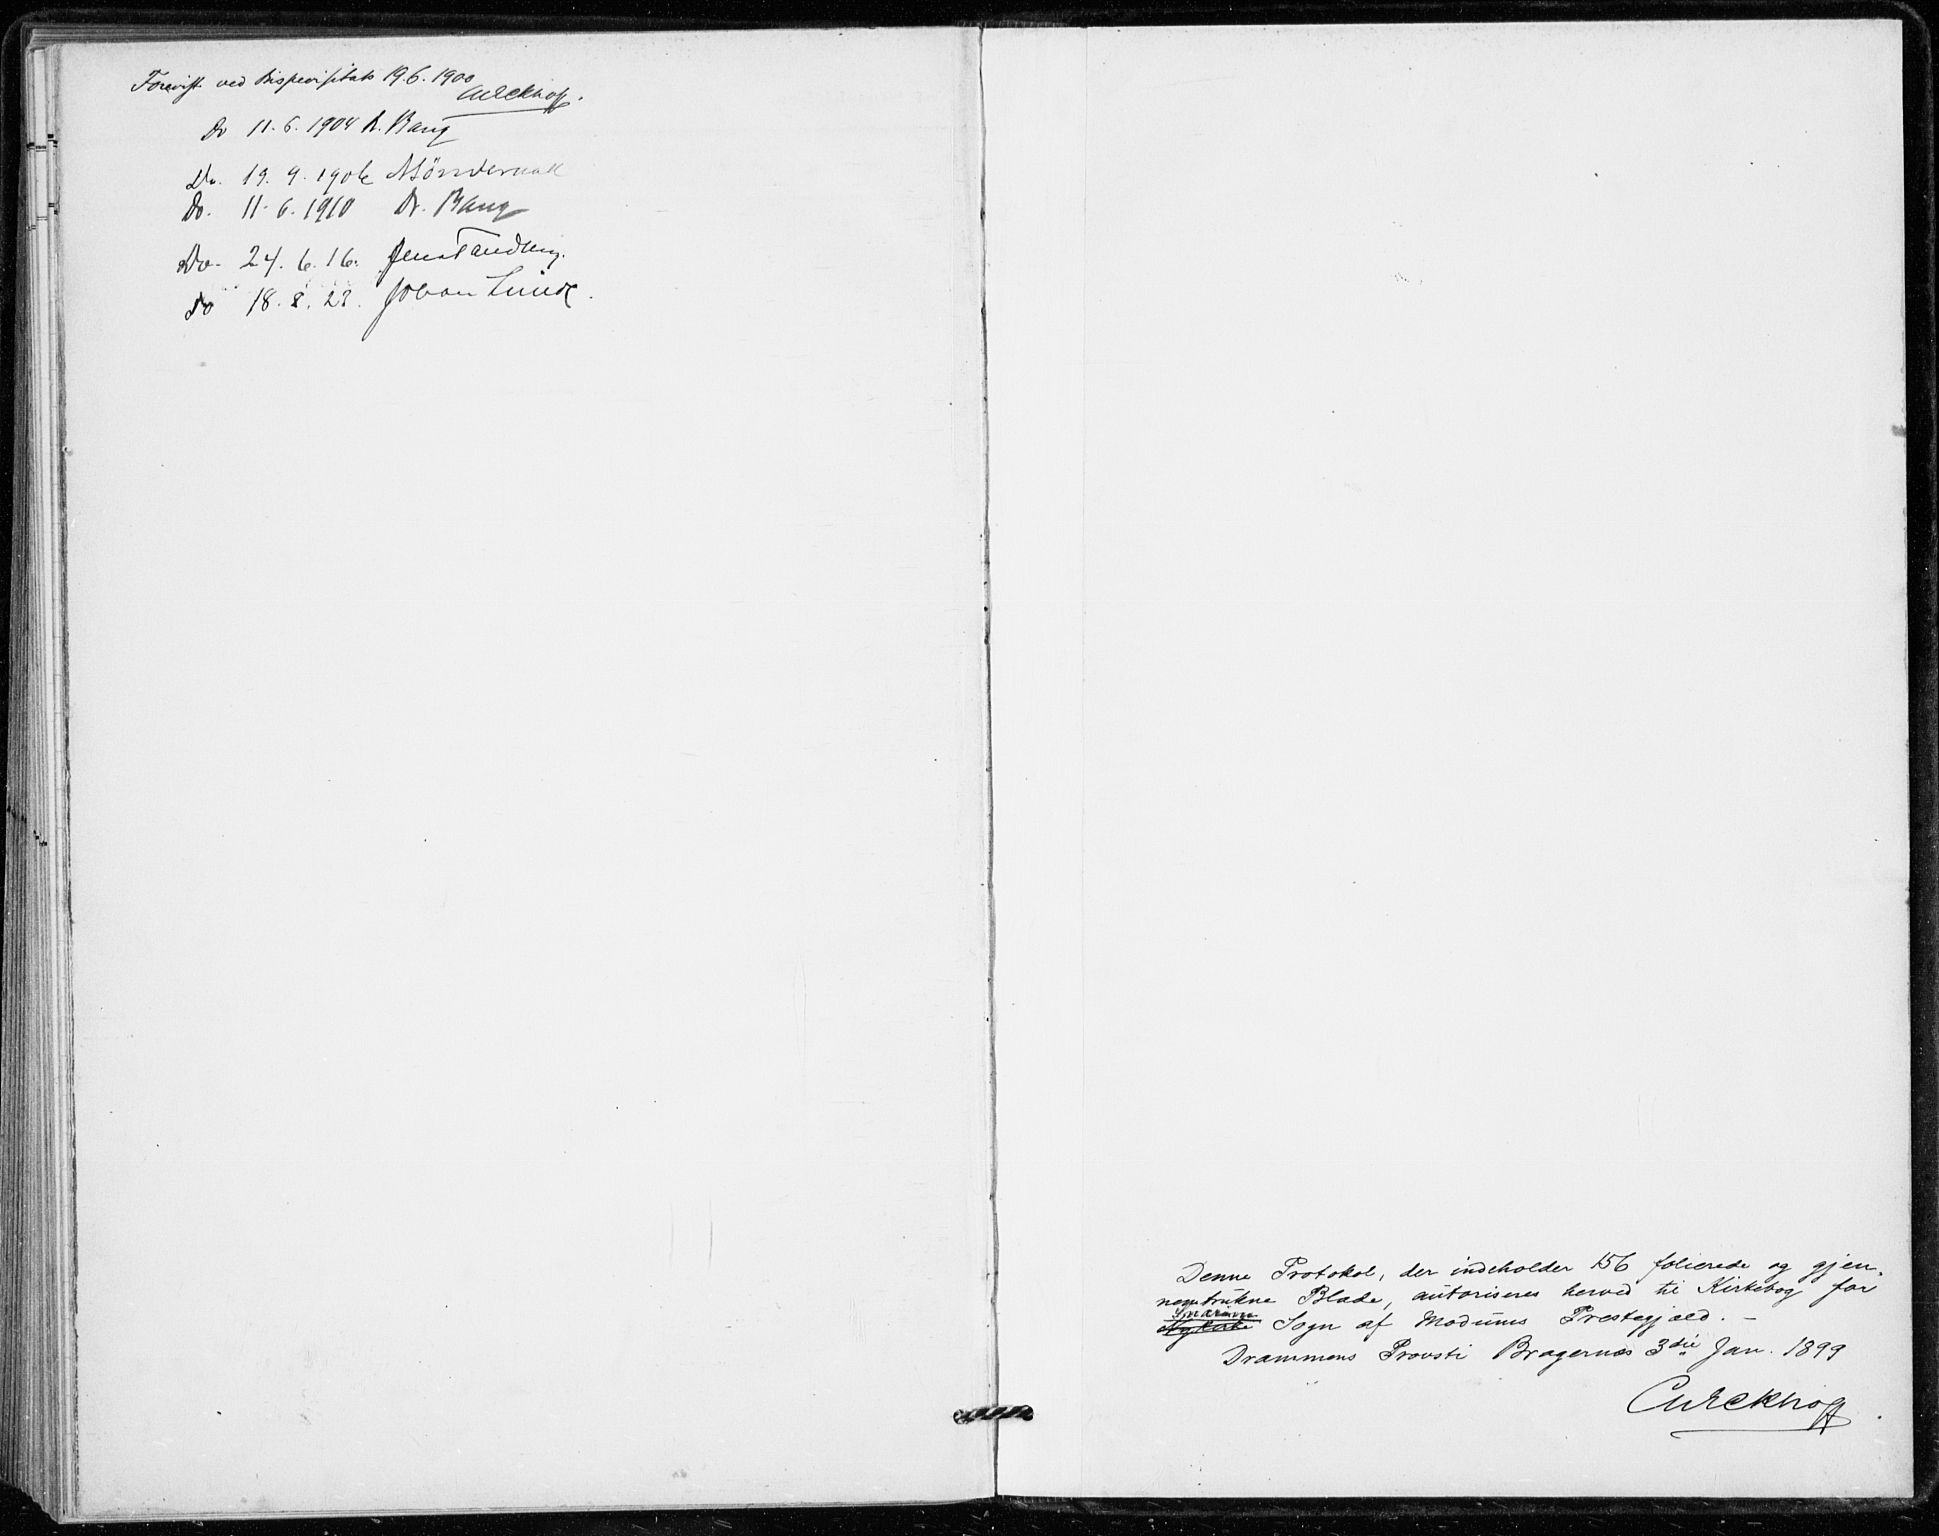 Forevist ved Bispevisitats 19.6.1900
CuEckhoff.
Do 11.6.1904 A. Bang
Do. 19.9.1906
Do. 11.6.1910 Dr. Bang
Do. 24.6.16. Jens Tandberg.
Do 18.8.23. Johan Lunde.
Denne Protokol, der indeholder 156 folierede og gjen-
nemtrukne Blade, autoriseres herved til Kirkebog for
Snarum
Nykirke Sogn af Modums Prestegjæld. –
Drammens Provsti Bragernæs 3die Jan. 1899
CuEckhoff.